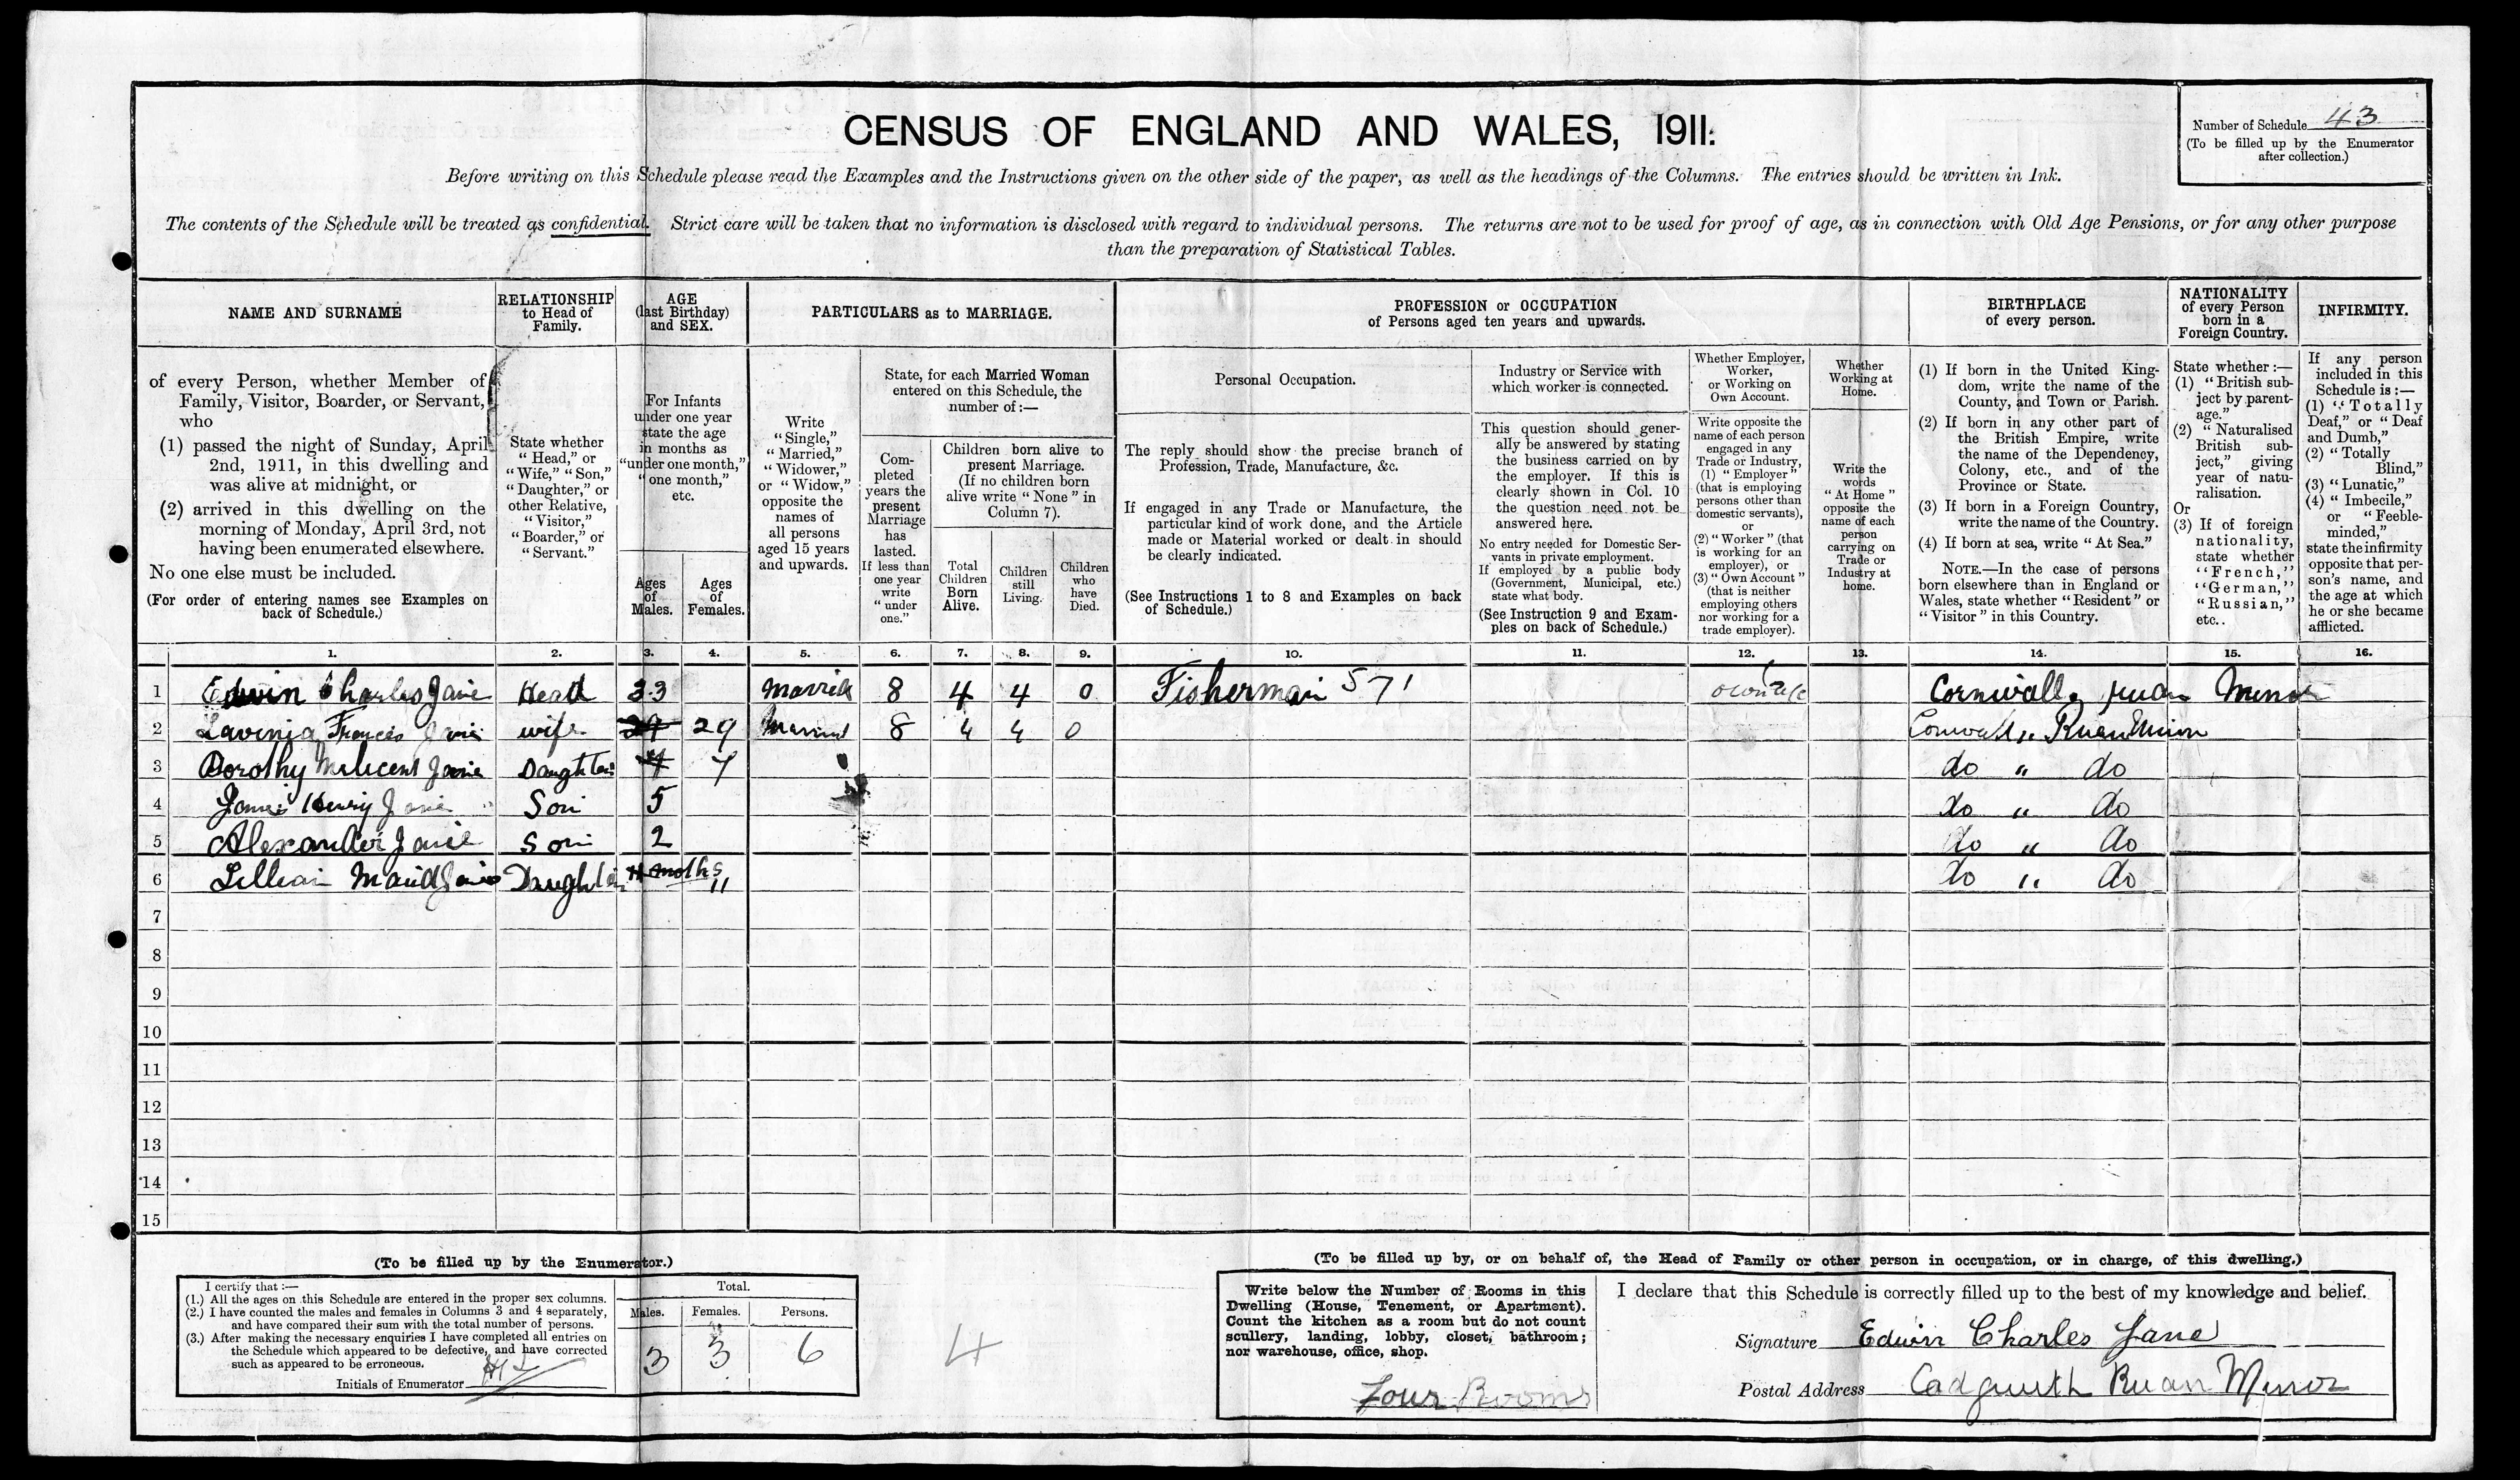 CENSUS OF ENGLAND AND WALES, 1911.
Number of Schedule 43
(To be filled up by the Enumerator
after collection.)
Before writing on this Schedule please read the Examples and the Instructions given on the other side of the paper, as well as the headings of the Columns. The entries should be written in Ink.
The contents of the Schedule will be treated as confidential. Strict care will be taken that no information is disclosed with regard to individual persons. The returns are not to be used for proof of age, as in connection with Old Age Pensions, or for any other purpose
than the preparation of Statistical Tables.
NAME AND SURNAME
of every Person, whether Member of
Family, Visitor, Boarder, or Servant,
who
(1) passed the night of Sunday, April
2nd, 1911, in this dwelling and
was alive at midnight, or
(2) arrived in this dwelling on the
morning of Monday, April 3rd, not
having been enumerated elsewhere.
No one else must be included.
(For order of entering names see Examples on
back of Schedule.)
RELATIONSHIP
to Head of
Family.
State whether
"Head," or
"Wife," "Son,"
"Daughter," or
other Relative,
"Visitor,"
"Boarder," or
"Servant."
AGE
(last Birthday)
and SEX.
For Infants
under one year
state the age
in months as
"under one month,"
"one month,"
etc.
Ages
of
Males.
Ages
of
Females.
PARTICULARS as to MARRIAGE.
Write
"Single,"
"Married,"
"Widower,"
or "Widow,"
opposite the
names of
all persons
aged 15 years
and upwards.
State, for each Married Woman
entered on this Schedule, the
number of:—
Com-
pleted
years the
present
Marriage
has
lasted.
If less than
one year
write
"under
one."
Children born alive to
present Marriage.
(If no children born
alive write "None" in
Column 7).
Total
Children
Born
Alive.
Children
still
Living.
Children
who
have
Died.
PROFESSION or OCCUPATION
of Persons aged ten years and upwards.
Personal Occupation.
The reply should show the precise branch of
Profession, Trade, Manufacture, &c.
If engaged in any Trade or Manufacture, the
particular kind of work done, and the Article
made or Material worked or dealt in should
be clearly indicated.
(See Instructions 1 to 8 and Examples on back
of Schedule.)
Industry or Service with
which worker is connected.
This question should gener-
ally be answered by stating
the business carried on by
the employer. If this is
clearly shown in Col. 10
the question need not be
answered here.
No entry needed for Domestic Ser-
vants in private employment.
If employed by a public body
(Government, Municipal, etc.)
state what body.
(See Instruction 9 and Exam-
ples on back of Schedule.)
Whether Employer,
Worker,
or Working on
Own Account.
Write opposite the
name of each person
engaged in any
Trade or Industry,
(1) "Employer"
(that is employing
persons other than
domestic servants),
or
(2) "Worker" (that
is working for an
employer), or
(3) "Own Account"
(that is neither
employing others
nor working for a
trade employer).
Whether
Working at
Home.
Write the
words
"At Home"
opposite the
name of each
person
carrying on
Trade or
Industry at
home.
BIRTHPLACE
of every person.
(1) If born in the United King-
dom, write the name of the
County, and Town or Parish.
(2) If born in any other part of
the British Empire, write
the name of the Dependency,
Colony, etc., and of the
Province or State.
(3) If born in a Foreign Country,
write the name of the Country.
(4) If born at sea, write "At Sea."
NOTE.—In the case of persons
born elsewhere than in England or
Wales, state whether "Resident" or
"Visitor" in this Country.
NATIONALITY
of every Person
born in a
Foreign Country.
State whether:—
(1) "British sub-
ject by parent-
age."
(2) "Naturalised
British sub-
ject," giving
year of natu-
ralisation.
Or
(3) If of foreign
nationality,
state whether
"French,"
"German,"
"Russian,"
etc..
INFIRMITY.
If any person
included in this
Schedule is:—
(1) "Totally
Deaf," or "Deaf
and Dumb,"
(2) "Totally
Blind,"
(3) "Lunatic,"
(4) "Imbecile,"
or "Feeble-
minded,"
state the infirmity
opposite that per-
son's name, and
the age at which
he or she became
afflicted.
1. 2. 3. 4. 5. 6. 7. 8. 9. 10. 11. 12. 13. 14. 15. 16.
1 Edwin Charles Jane Head 33 Married 8 4 4 0 Fisherman 571 own a/c Cornwall, Ruan Minor
2 Lavinia Frances Jane wife 29 29 Married 8 4 4 0 Cornwall " Ruan Minor
3 Dorothy Milicent Jane Daughter 7 7 do " do
4 James Henry Jane Son 5 do " do
5 Alexander Jane Son 2 do " do
6 Lillian Maud Jane Daughter 11 moths 11 do " do
7
8
9
10
11
12
13
14
15
(To be filled up by the Enumerator.)
I certify that:—
(1.) All the ages on this Schedule are entered in the proper sex columns.
(2.) I have counted the males and females in Columns 3 and 4 separately,
and have compared their sum with the total number of persons.
(3.) After making the necessary enquiries I have completed all entries on
the Schedule which appeared to be defective, and have corrected
such as appeared to be erroneous.
Initials of Enumerator
Total.
Males. Females. Persons.
3 3 6
4
(To be filled up by, or on behalf of, the Head of Family or other person in occupation, or in charge, of this dwelling.)
Write below the Number of Rooms in this
Dwelling (House, Tenement, or Apartment).
Count the kitchen as a room but do not count
scullery, landing, lobby, closet, bathroom;
nor warehouse, office, shop.
Four Rooms
I declare that this Schedule is correctly filled up to the best of my knowledge and belief.
Signature Edwin Charles Jane
Postal Address Cadgwith Ruan Minor